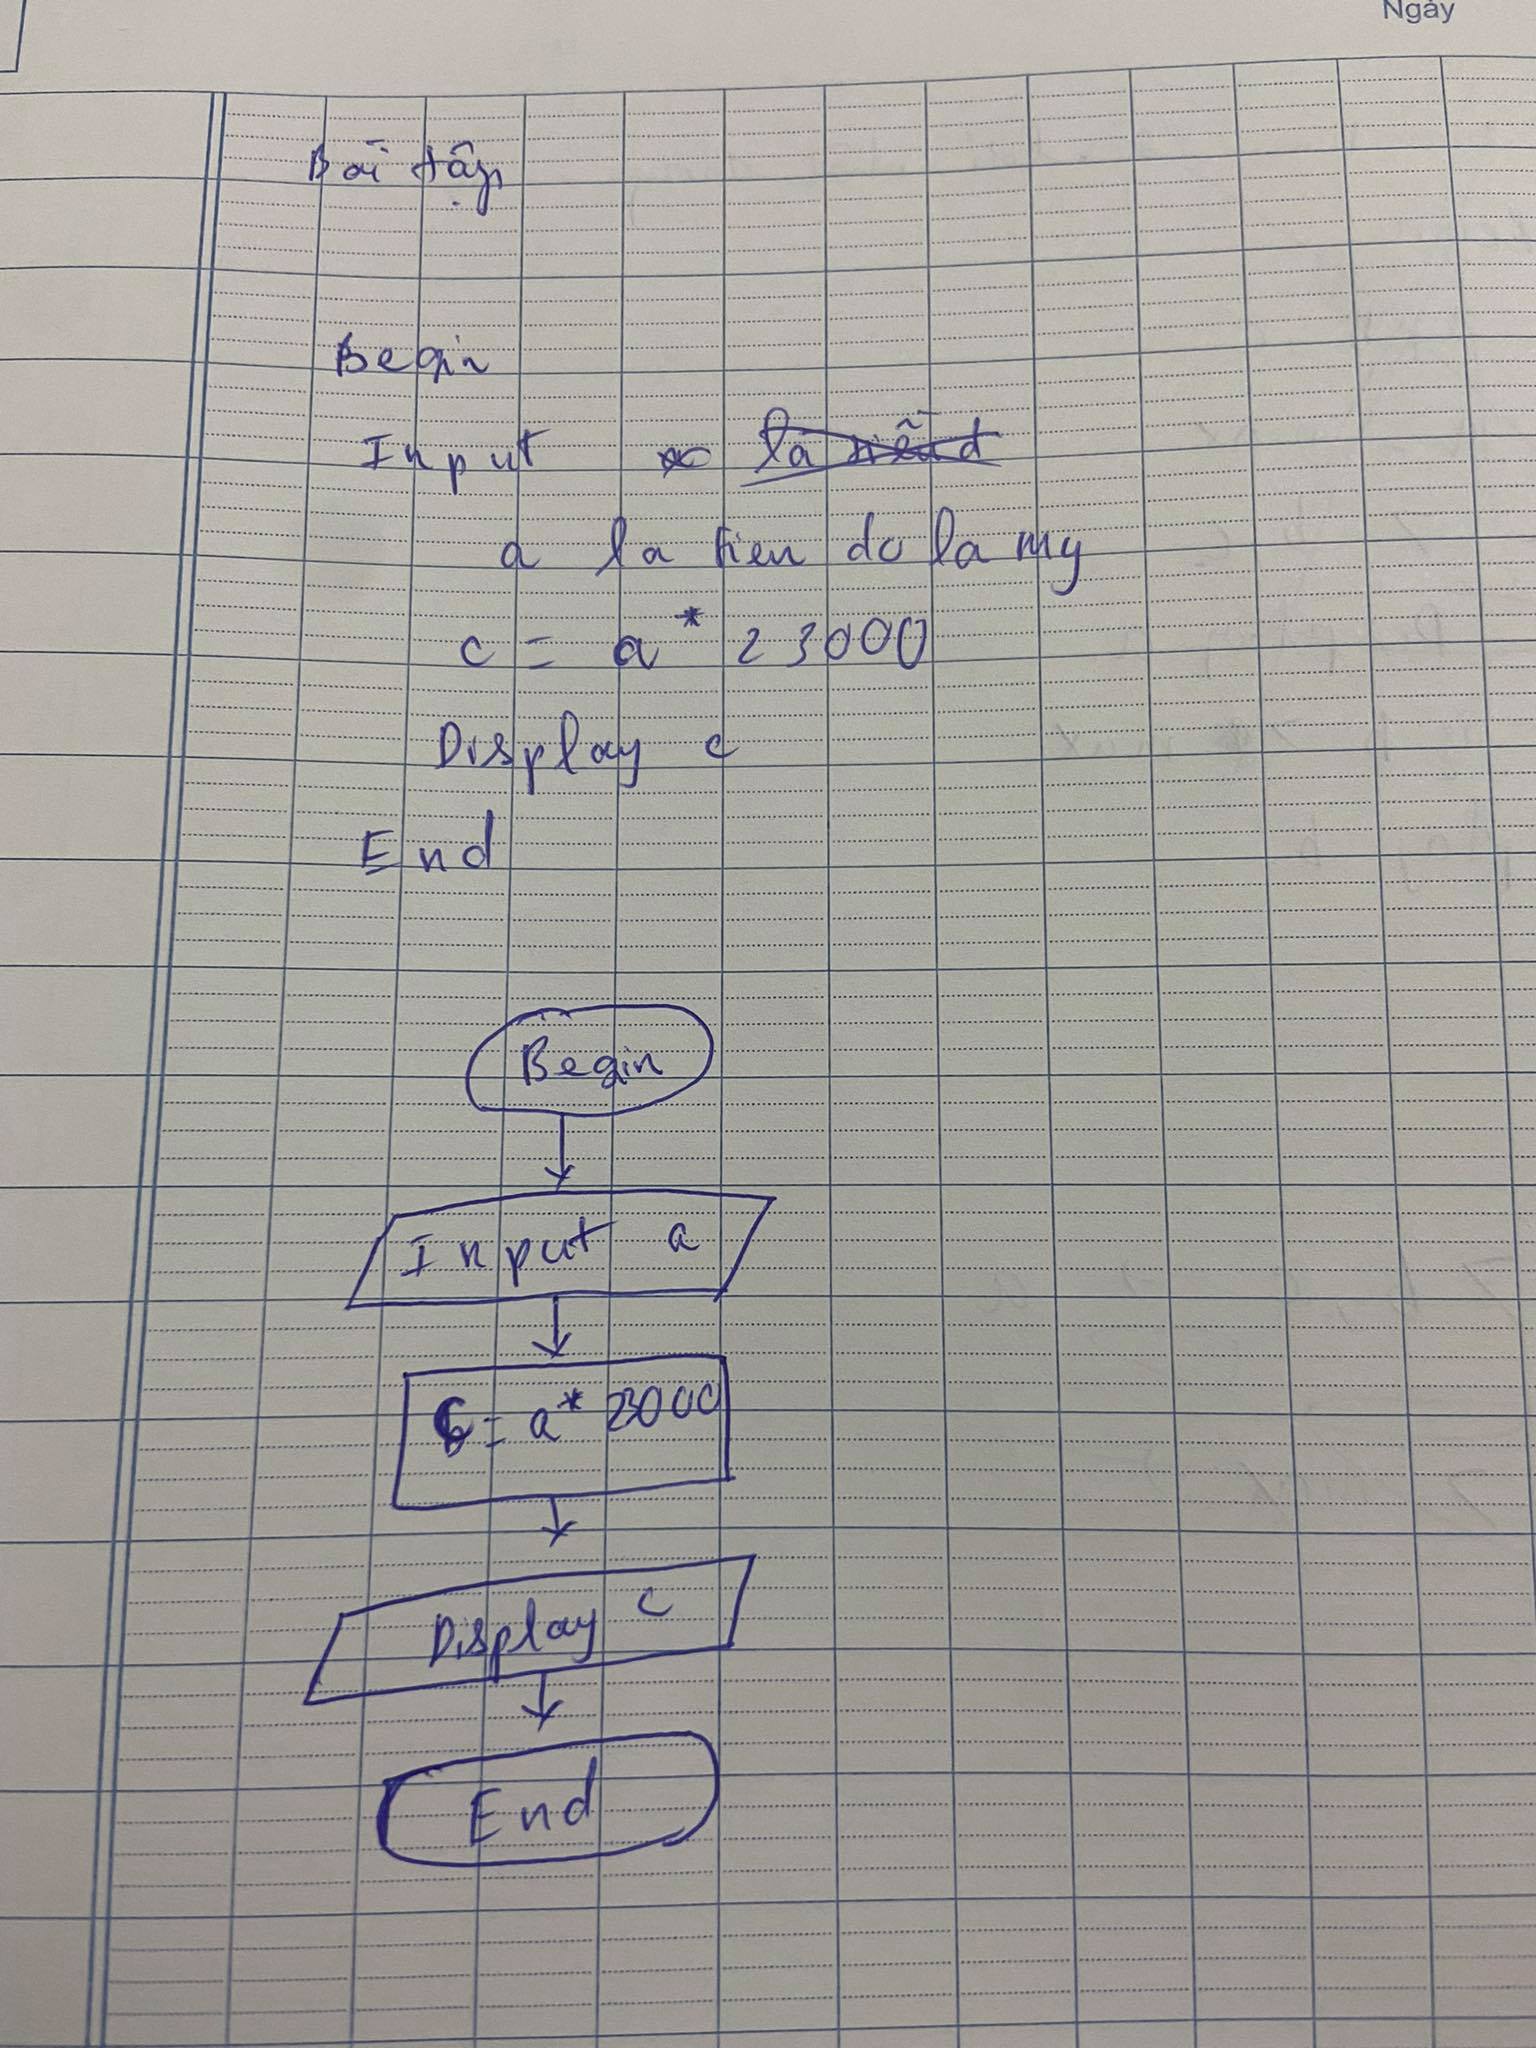 Ngày
Bài tập
Begin
Input
a la tien do la my
c = a * 23000
Display c
End
Begin
Input a
C = a * 23000
Display c
End